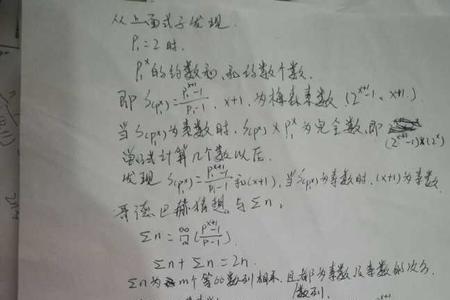 从上面式子发现
P₁=2时.
P₁ˣ的约数和,和约数个数.
即 S(P₁ˣ)=(P₁ˣ⁺¹-1)/(P₁-1), x+1, 为梅森素数 (2ˣ⁺¹-1, x+1)
当S(P₁ˣ)为素数时, S(P₁ˣ)×P₁ˣ为完全数, 即
(2ˣ⁺¹-1)×(2ˣ)
式计算几个数以后.
发现 S(P₁ˣ)=(P₁ˣ⁺¹-1)/(P₁-1)和(x+1), 当S(P₁ˣ)为素数时, (x+1)为素数
哥德巴赫猜想与Σn;
Σn=
Σn+Σn=2n.
Σn为m个等比数列相乘, 且都为素数及素数的次方
数列.